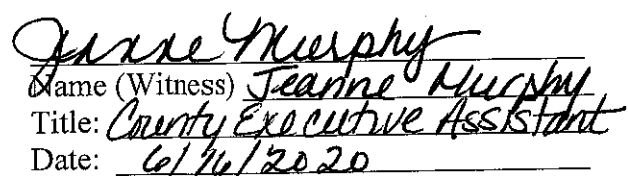 Jeanne Murphy
Name (Witness) Jeanne Murphy
Title: County Executive Assistant
Date: 6/16/2020